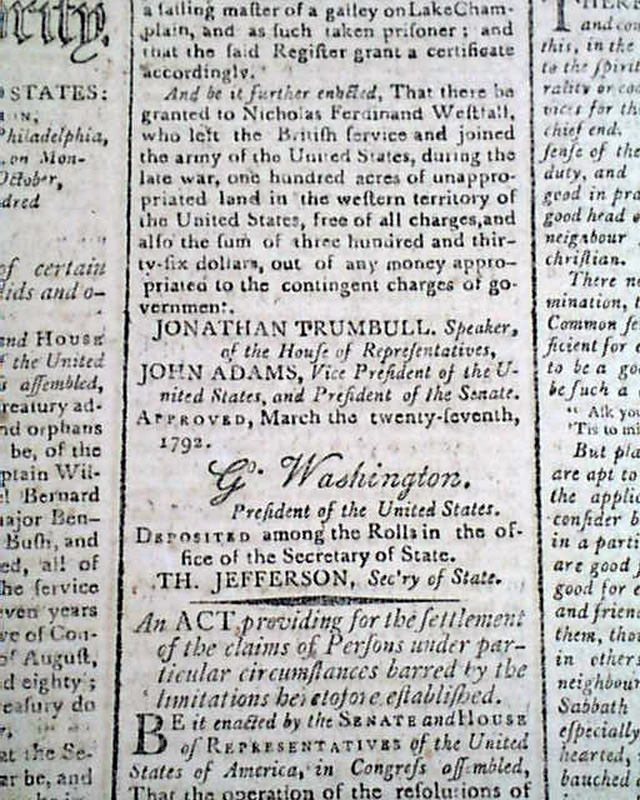 arity.
STATES:
Philadelphia,
on Mon-
October,
dred
of certain
lds and o-
and House
the United
assembled,
reasury ad-
nd orphans
be, of the
ptain Wil-
Bernard
major Ben-
Bush, and
ed, all of
he service
even years
ve of Con-
of August,
d eighty;
reasury do
at the Se-
ar be, and
a sailing maſter of a galley on Lake Cham-
plain, and as ſuch taken priſoner; and
that the ſaid Regiſter grant a certificate
accordingly.
And be it further enacted, That there be
granted to Nicholas Ferdinand Weſtfall,
who left the Britiſh ſervice and joined
the army of the United States, during the
late war, one hundred acres of unappro-
priated land in the weſtern territory of
the United States, free of all charges, and
alſo the ſum of three hundred and thir-
ty-ſix dollars, out of any money appro-
priated to the contingent charges of go-
vernment.
JONATHAN TRUMBULL. Speaker,
of the Houſe of Repreſentatives,
JOHN ADAMS, Vice Preſident of the U-
nited States, and Preſident of the Senate.
APPROVED, March the twenty-ſeventh,
1792.
Go. Waſhington.
Preſident of the United States.
DEPOSITED among the Rolls in the of-
fice of the Secretary of State.
TH. JEFFERSON, Sec'ry of State.
An ACT providing for the ſettlement
of the claims of Perſons under par-
ticular circumſtances barred by the
limitations heretofore eſtabliſhed.
BE it enacted by the SENATE and HOUSE
of REPRESENTATIVES of the United
States of America, in Congreſs aſſembled,
That the operation of the reſolutions of
THERE
and con
this, in the
to the ſpirit
rality or
vices for th
chief end.
ſenſe of the
duty, and
good in pra
good head
neighbour
chriſtian.
There
mination,
Common ſe
ficient for
to be a go
be ſuch a
" Aſk yo
'Tis to mi
But pla
are apt to
the applic
conſider b
in a parti
are good
good for
and frien
them, tho
in others
neighbour
Sabbath
eſpecially
hearted,
bauched